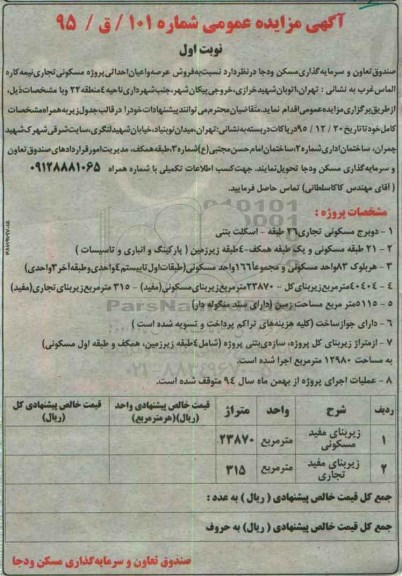 آگهی مزایده عمومی شماره ۱۰۱ / ق / ۹۵
نوبت اول
صندوق تعاون و سرمایه گذاری مسکن ودجا در نظر دارد نسبت به فروش عرصه واعیان احداثی پروژه مسکونی تجاری نیمه کاره
الماس غرب به نشانی : تهران، اتوبان شهید خرازی، خروجی پیکان شهر، جنب شهرداری ناحیه ۴ منطقه ۲۲ وبا مشخصات ذیل،
از طریق برگزاری مزایده عمومی اقدام نماید. متقاضیان محترم می توانند پیشنهادات خود را در قالب جدول زیر به همراه مشخصات
کامل خود تا تاریخ ۲۰ / ۱۲ / ۹۵ در پاکات دربسته به نشانی: تهران، میدان نوبنیاد، خیابان شهید لنگری، سایت شرقی شهرک شهید
چمران، ساختمان اداری شماره ۲، ساختمان امام حسن مجتبی (ع) شماره ۳، طبقه همکف، مدیریت امور قراردادهای صندوق تعاون
و سرمایه گذاری مسکن ودجا تحویل نمایند. جهت کسب اطلاعات تکمیلی با شماره همراه ۰۹۱۲۸۸۸۱۰۶۵
( آقای مهندس کاکاسلطانی) تماس حاصل فرمایید.
مشخصات پروژه :
۱ - دوبرج مسکونی تجاری ۲۶ طبقه - اسکلت بتنی
۲ - ۲۱ طبقه مسکونی و یک طبقه همکف - ۴ طبقه زیرزمین ( پارکینگ و انباری و تاسیسات )
۳ - هر بلوک ۸۳ واحد مسکونی و مجموعاً ۱۶۶ واحد مسکونی (طبقات اول تا بیستم ۴ واحدی وطبقه آخر ۳ واحدی)
۴ - ۴۰۴۰۴ مترمربع زیربنای کل - ۲۳۸۷۰ مترمربع زیربنای مسکونی (مفید) - ۳۱۵ مترمربع زیربنای تجاری (مفید)
۵ - ۵۱۱۵ متر مربع مساحت زمین (دارای سند منگوله دار)
۶ - دارای جواز ساخت (کلیه هزینه های تراکم پرداخت و تسویه شده است )
۷ - از متراژ زیربنای کل پروژه، سازه ی بتنی پروژه (شامل ۴ طبقه زیرزمین، همکف و طبقه اول مسکونی)
به مساحت ۱۲۹۸۰ مترمربع اجرا شده است.
۸ - عملیات اجرای پروژه از بهمن ماه سال ۹۴ متوقف شده است.
ردیف شرح واحد متراژ قیمت خالص پیشنهادی واحد (ریال)(هر مترمربع) قیمت خالص پیشنهادی کل (ریال)
۱ زیربنای مفید مسکونی مترمربع ۲۳۸۷۰
۲ زیربنای مفید تجاری مترمربع ۳۱۵
جمع کل قیمت خالص پیشنهادی ( ریال ) به عدد :
جمع کل قیمت خالص پیشنهادی ( ریال ) به حروف
صندوق تعاون و سرمایه گذاری مسکن ودجا